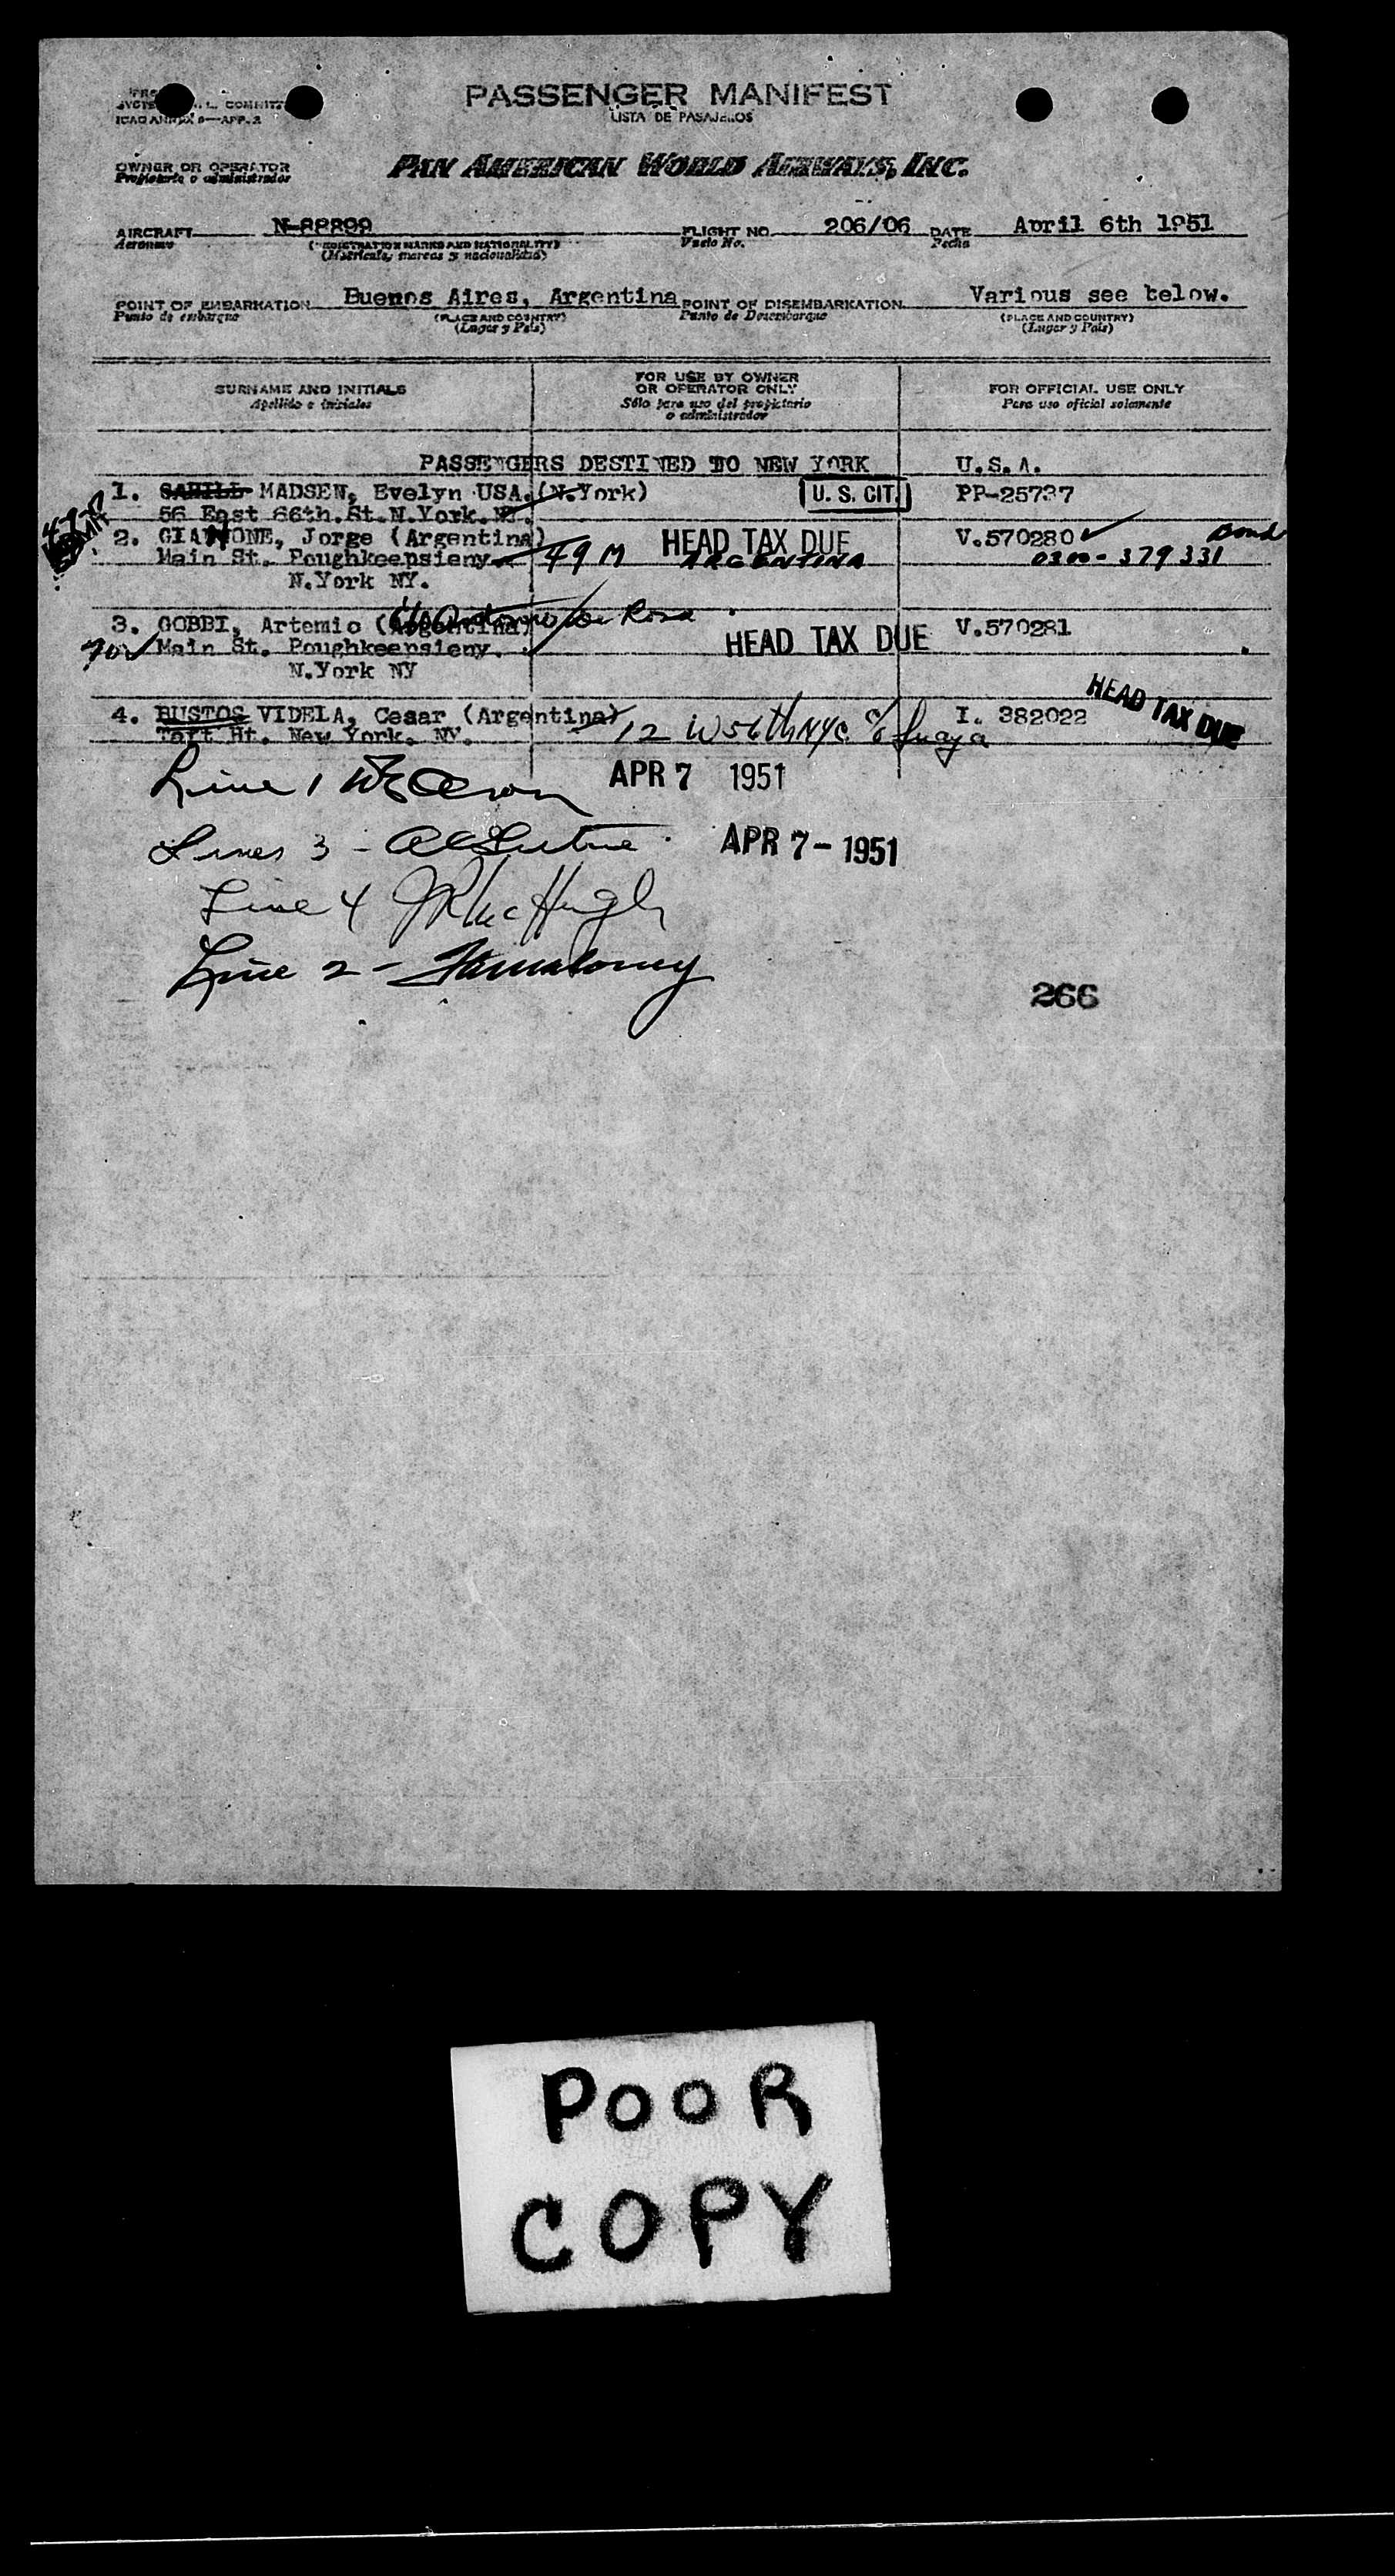 PASSENGER MANIFEST
LISTA DE PASAJEROS
ICAO ANNEX 9—APP. 2
OWNER OR OPERATOR
Propietario o administrador
PAN AMERICAN WORLD AIRWAYS, INC.
AIRCRAFT N-88899 FLIGHT NO. 206/06 DATE April 6th 1951
Aeronave (REGISTRATION MARKS AND NATIONALITY) Vuelo No. Fecha
(Matricula, marcas y nacionalidad)
POINT OF EMBARKATION Buenos Aires, Argentina POINT OF DISEMBARKATION Various see below.
Punto de embarque (PLACE AND COUNTRY) Punto de Desembarque (PLACE AND COUNTRY)
(Lugar y País) (Lugar y País)
SURNAME AND INITIALS FOR USE BY OWNER OR OPERATOR ONLY FOR OFFICIAL USE ONLY
Apellido e iniciales Sólo para uso del propietario o administrador Para uso oficial solamente
PASSENGERS DESTINED TO NEW YORK U.S.A.
1. MADSEN, Evelyn USA.(N.York) U. S. CIT. PP-25737
56 East 66th.St.N.York.
2. GIANNONE, Jorge (Argentina) HEAD TAX DUE V.570280 Bond
Main St. Poughkeepsieny 49 M ARGENTINA 0300-379331
N.York NY.
3. GOBBI, Artemio (Argentina) c/o Antonio De Rosa HEAD TAX DUE V.570281
70 Main St. Poughkeepsieny.
N.York NY
4. BUSTOS VIDELA, Cesar (Argentina) I. 382022 HEAD TAX DUE
Taft Ht. New York. NY. 12 W 56th NYC c/o
Line 1 APR 7 1951
Lines 3 - APR 7 - 1951
Line 4 JR McHugh
Line 2 -
266
POOR
COPY